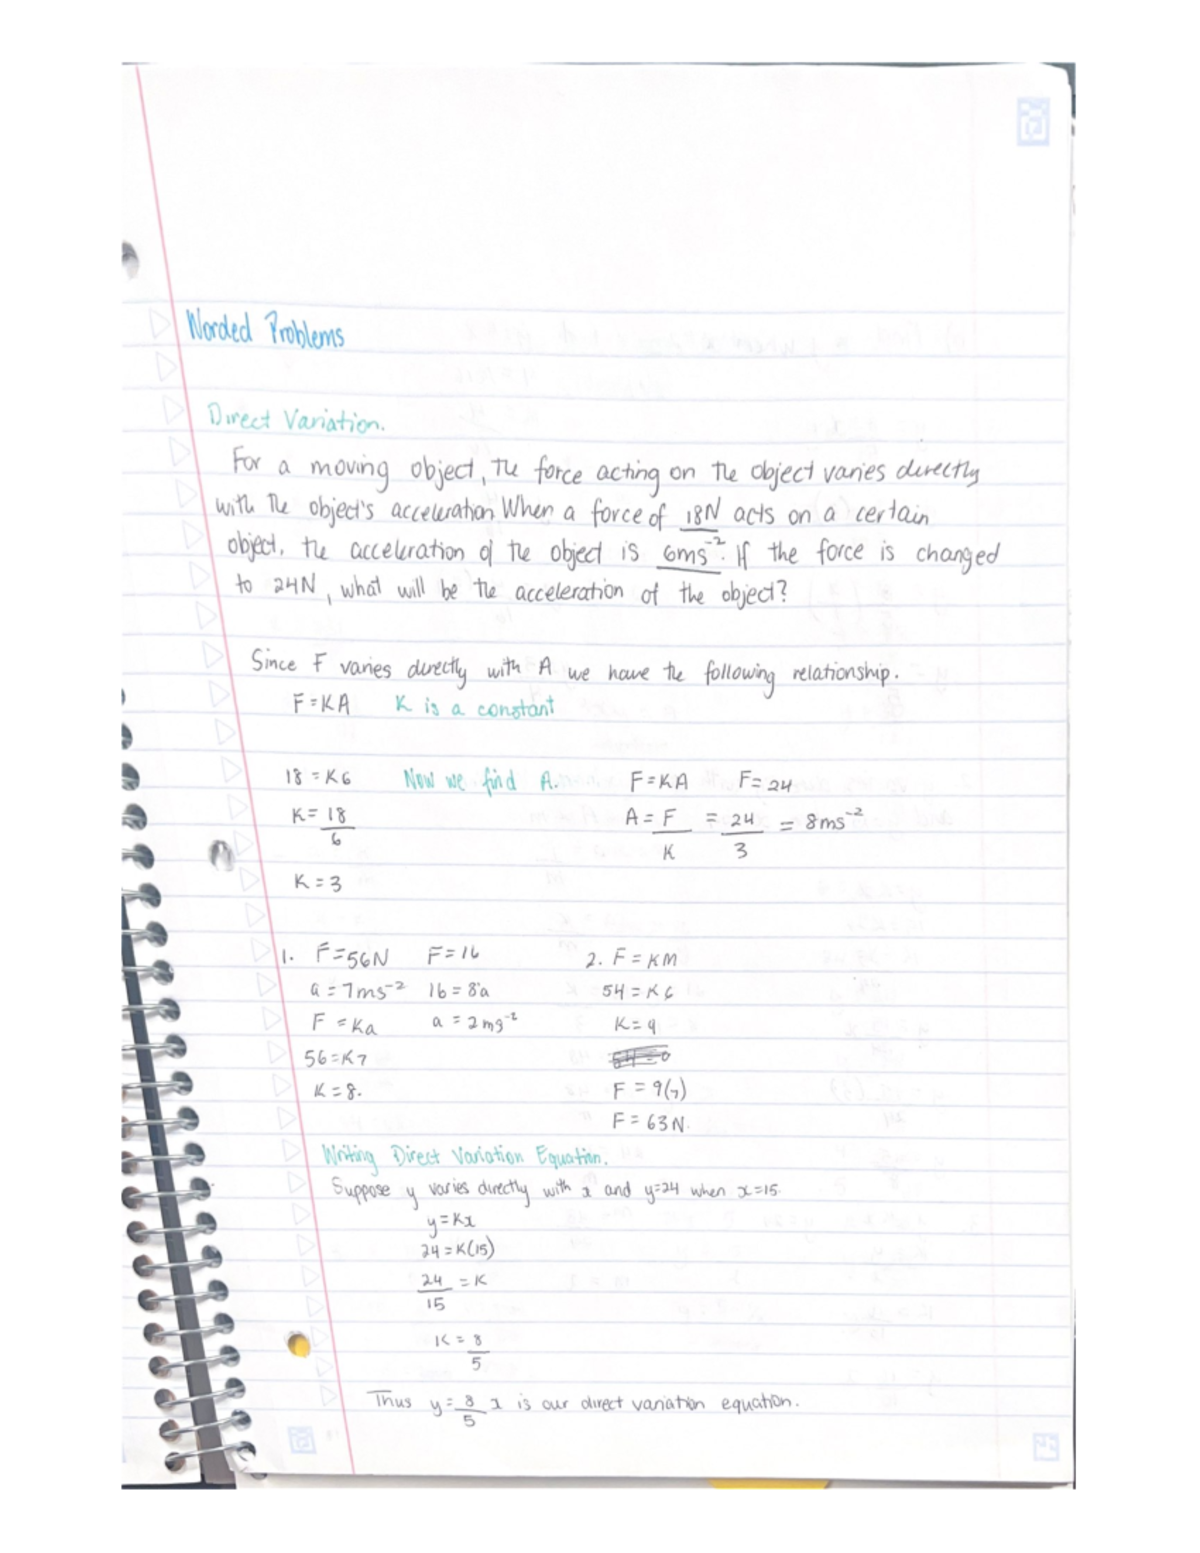 Worded Problems
Direct Variation.
For a moving object, the force acting on the object varies directly
with the object's acceleration When a force of 18N acts on a certain
object, the acceleration of the object is 6ms⁻². If the force is changed
to 24N, what will be the acceleration of the object?
Since F varies directly with A we have the following relationship.
F=KA K is a constant
18 = K6 Now we find A. F=KA F=24
K= 18/6 A = F/K = 24/3 = 8ms⁻²
K = 3
1. F=56N F=16 2. F = KM
a = 7ms⁻² 16 = 8a 54 = K6
F = Ka a = 2ms⁻² K=9
56=K7
K = 8. F = 9(7)
F = 63N.
Writing Direct Variation Equation.
Suppose y varies directly with x and y=24 when x=15.
y=Kx
24=K(15)
24/15 = K
K = 8/5
Thus y= 8/5 x is our direct variation equation.